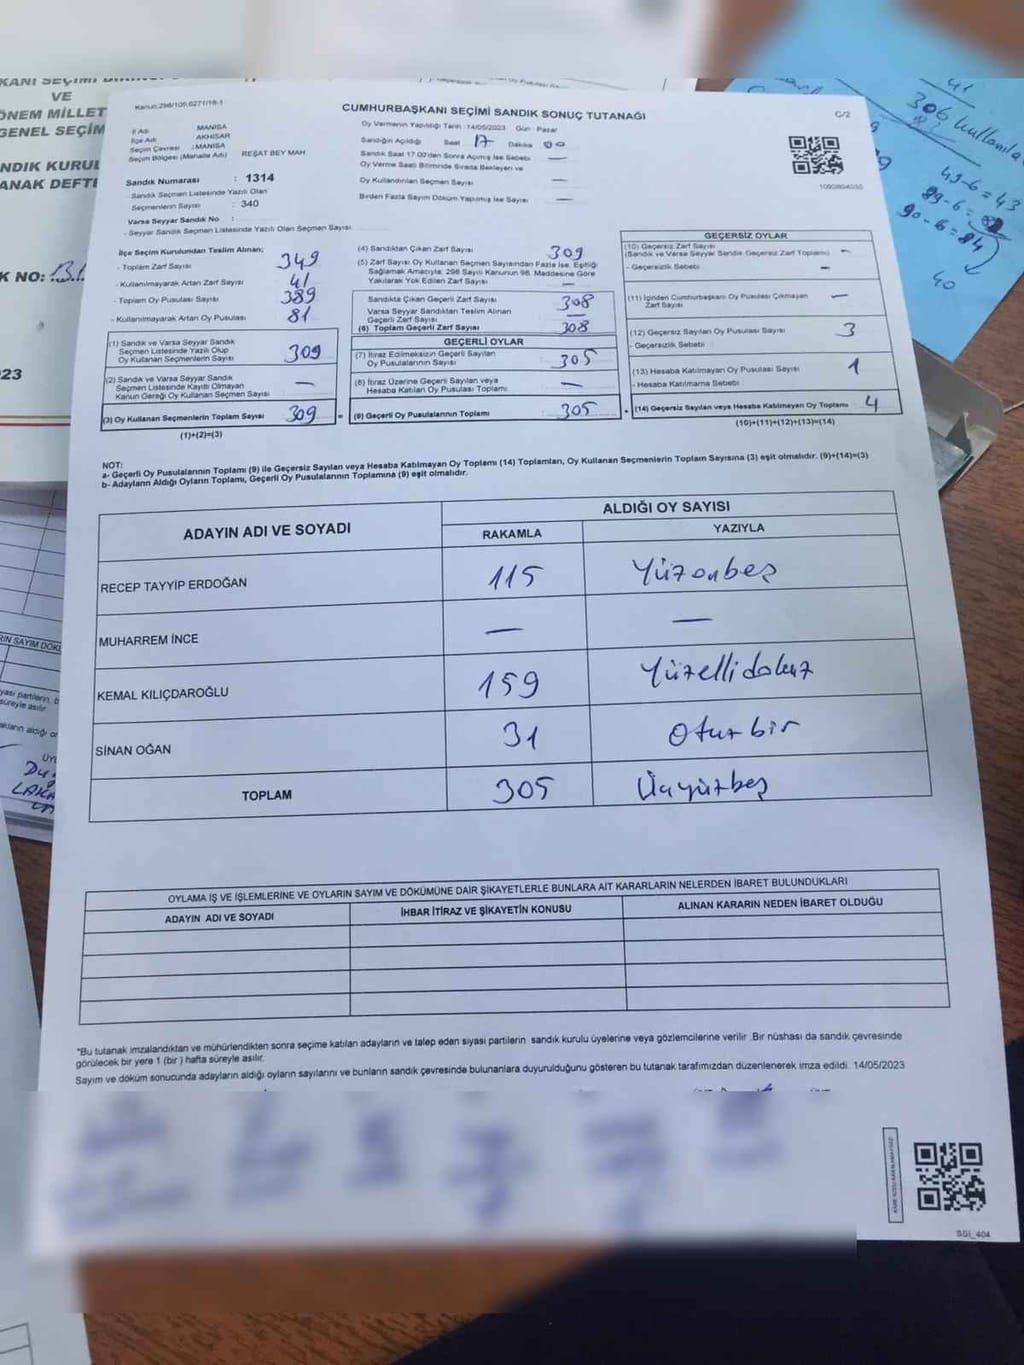 KANI SEÇİMİ
VE
ÖNEM MİLLET
GENEL SEÇİM
NDIK KURUL
ANAK DEFT
K NO: 131
23
Kanun:298/105,6271/16-1
CUMHURBAŞKANI SEÇİMİ SANDIK SONUÇ TUTANAĞI
C/2
İl Adı MANİSA
İlçe Adı AKHİSAR
Seçim Çevresi : MANİSA
Seçim Bölgesi (Mahalle Adı) REŞAT BEY MAH
Sandık Numarası : 1314
Sandık Seçmen Listesinde Yazılı Olan
Seçmenlerin Sayısı : 340
Varsa Seyyar Sandık No :
- Seyyar Sandık Seçmen Listesinde Yazılı Olan Seçmen Sayısı
Oy Vermenin Yapıldığı Tarih :14/05/2023 Gün : Pazar
Sandığın Açıldığı Saat 17 Dakika 00
Sandık Saat 17.00'den Sonra Açılmış İse Sebebi —
Oy Verme Saati Bitiminde Sırada Bekleyen ve
Oy Kullandırılan Seçmen Sayısı —
Birden Fazla Sayım Döküm Yapılmış İse Sayısı —
İlçe Seçim Kurulundan Teslim Alınan;
- Toplam Zarf Sayısı 349
- Kullanılmayarak Artan Zarf Sayısı 41
- Toplam Oy Pusulası Sayısı 389
- Kullanılmayarak Artan Oy Pusulası 81
(1) Sandık ve Varsa Seyyar Sandık
Seçmen Listesinde Yazılı Olup
Oy Kullanan Seçmenlerin Sayısı 309
(2) Sandık ve Varsa Seyyar Sandık
Seçmen Listesinde Kayıtlı Olmayan
Kanun Gereği Oy Kullanan Seçmen Sayısı —
(3) Oy Kullanan Seçmenlerin Toplam Sayısı 309 =
(1)+(2)=(3)
(4) Sandıktan Çıkan Zarf Sayısı 309
(5) Zarf Sayısı Oy Kullanan Seçmen Sayısından Fazla İse, Eşitliği
Sağlamak Amacıyla; 298 Sayılı Kanunun 98. Maddesine Göre
Yakılarak Yok Edilen Zarf Sayısı —
Sandıkta Çıkan Geçerli Zarf Sayısı 308
Varsa Seyyar Sandıktan Teslim Alınan
Geçerli Zarf Sayısı —
(6) Toplam Geçerli Zarf Sayısı 308
GEÇERLİ OYLAR
(7) İtiraz Edilmeksizin Geçerli Sayılan
Oy Pusulalarının Sayısı 305
(8) İtiraz Üzerine Geçerli Sayılan veya
Hesaba Katılan Oy Pusulası Toplamı —
(9) Geçerli Oy Pusulalarının Toplamı 305 +
GEÇERSİZ OYLAR
(10) Geçersiz Zarf Sayısı
(Sandık ve Varsa Seyyar Sandık Geçersiz Zarf Toplamı) —
- Geçersizlik Sebebi —
(11) İçinden Cumhurbaşkanı Oy Pusulası Çıkmayan
Zarf Sayısı —
(12) Geçersiz Sayılan Oy Pusulası Sayısı 3
- Geçersizlik Sebebi
(13) Hesaba Katılmayan Oy Pusulası Sayısı 1
- Hesaba Katılmama Sebebi
(14) Geçersiz Sayılan veya Hesaba Katılmayan Oy Toplamı 4
(10)+(11)+(12)+(13)=(14)
NOT:
a- Geçerli Oy Pusulalarının Toplamı (9) ile Geçersiz Sayılan veya Hesaba Katılmayan Oy Toplamı (14) Toplamları, Oy Kullanan Seçmenlerin Toplam Sayısına (3) eşit olmalıdır. (9)+(14)=(3)
b- Adayların Aldığı Oyların Toplamı, Geçerli Oy Pusulalarının Toplamına (9) eşit olmalıdır.
ADAYIN ADI VE SOYADI ALDIĞI OY SAYISI
RAKAMLA YAZIYLA
RECEP TAYYİP ERDOĞAN 115 Yüzonbeş
MUHARREM İNCE — —
KEMAL KILIÇDAROĞLU 159 Yüzellidokuz
SİNAN OĞAN 31 Oturbir
TOPLAM 305 Üçyüzbeş
OYLAMA İŞ VE İŞLEMLERİNE VE OYLARIN SAYIM VE DÖKÜMÜNE DAİR ŞİKAYETLERLE BUNLARA AİT KARARLARIN NELERDEN İBARET BULUNDUKLARI
ADAYIN ADI VE SOYADI İHBAR İTİRAZ VE ŞİKAYETİN KONUSU ALINAN KARARIN NEDEN İBARET OLDUĞU
*Bu tutanak imzalandıktan ve mühürlendikten sonra seçime katılan adayların ve talep eden siyasi partilerin sandık kurulu üyelerine veya gözlemcilerine verilir .Bir nüshası da sandık çevresinde
görülecek bir yere 1 (bir ) hafta süreyle asılır.
Sayım ve döküm sonucunda adayların aldığı oyların sayılarını ve bunların sandık çevresinde bulunanlara duyurulduğunu gösteren bu tutanak tarafımızdan düzenlenerek imza edildi. 14/05/2023
SGİ_404
41
306 kullanıla
49-6=43
90-6=84
40